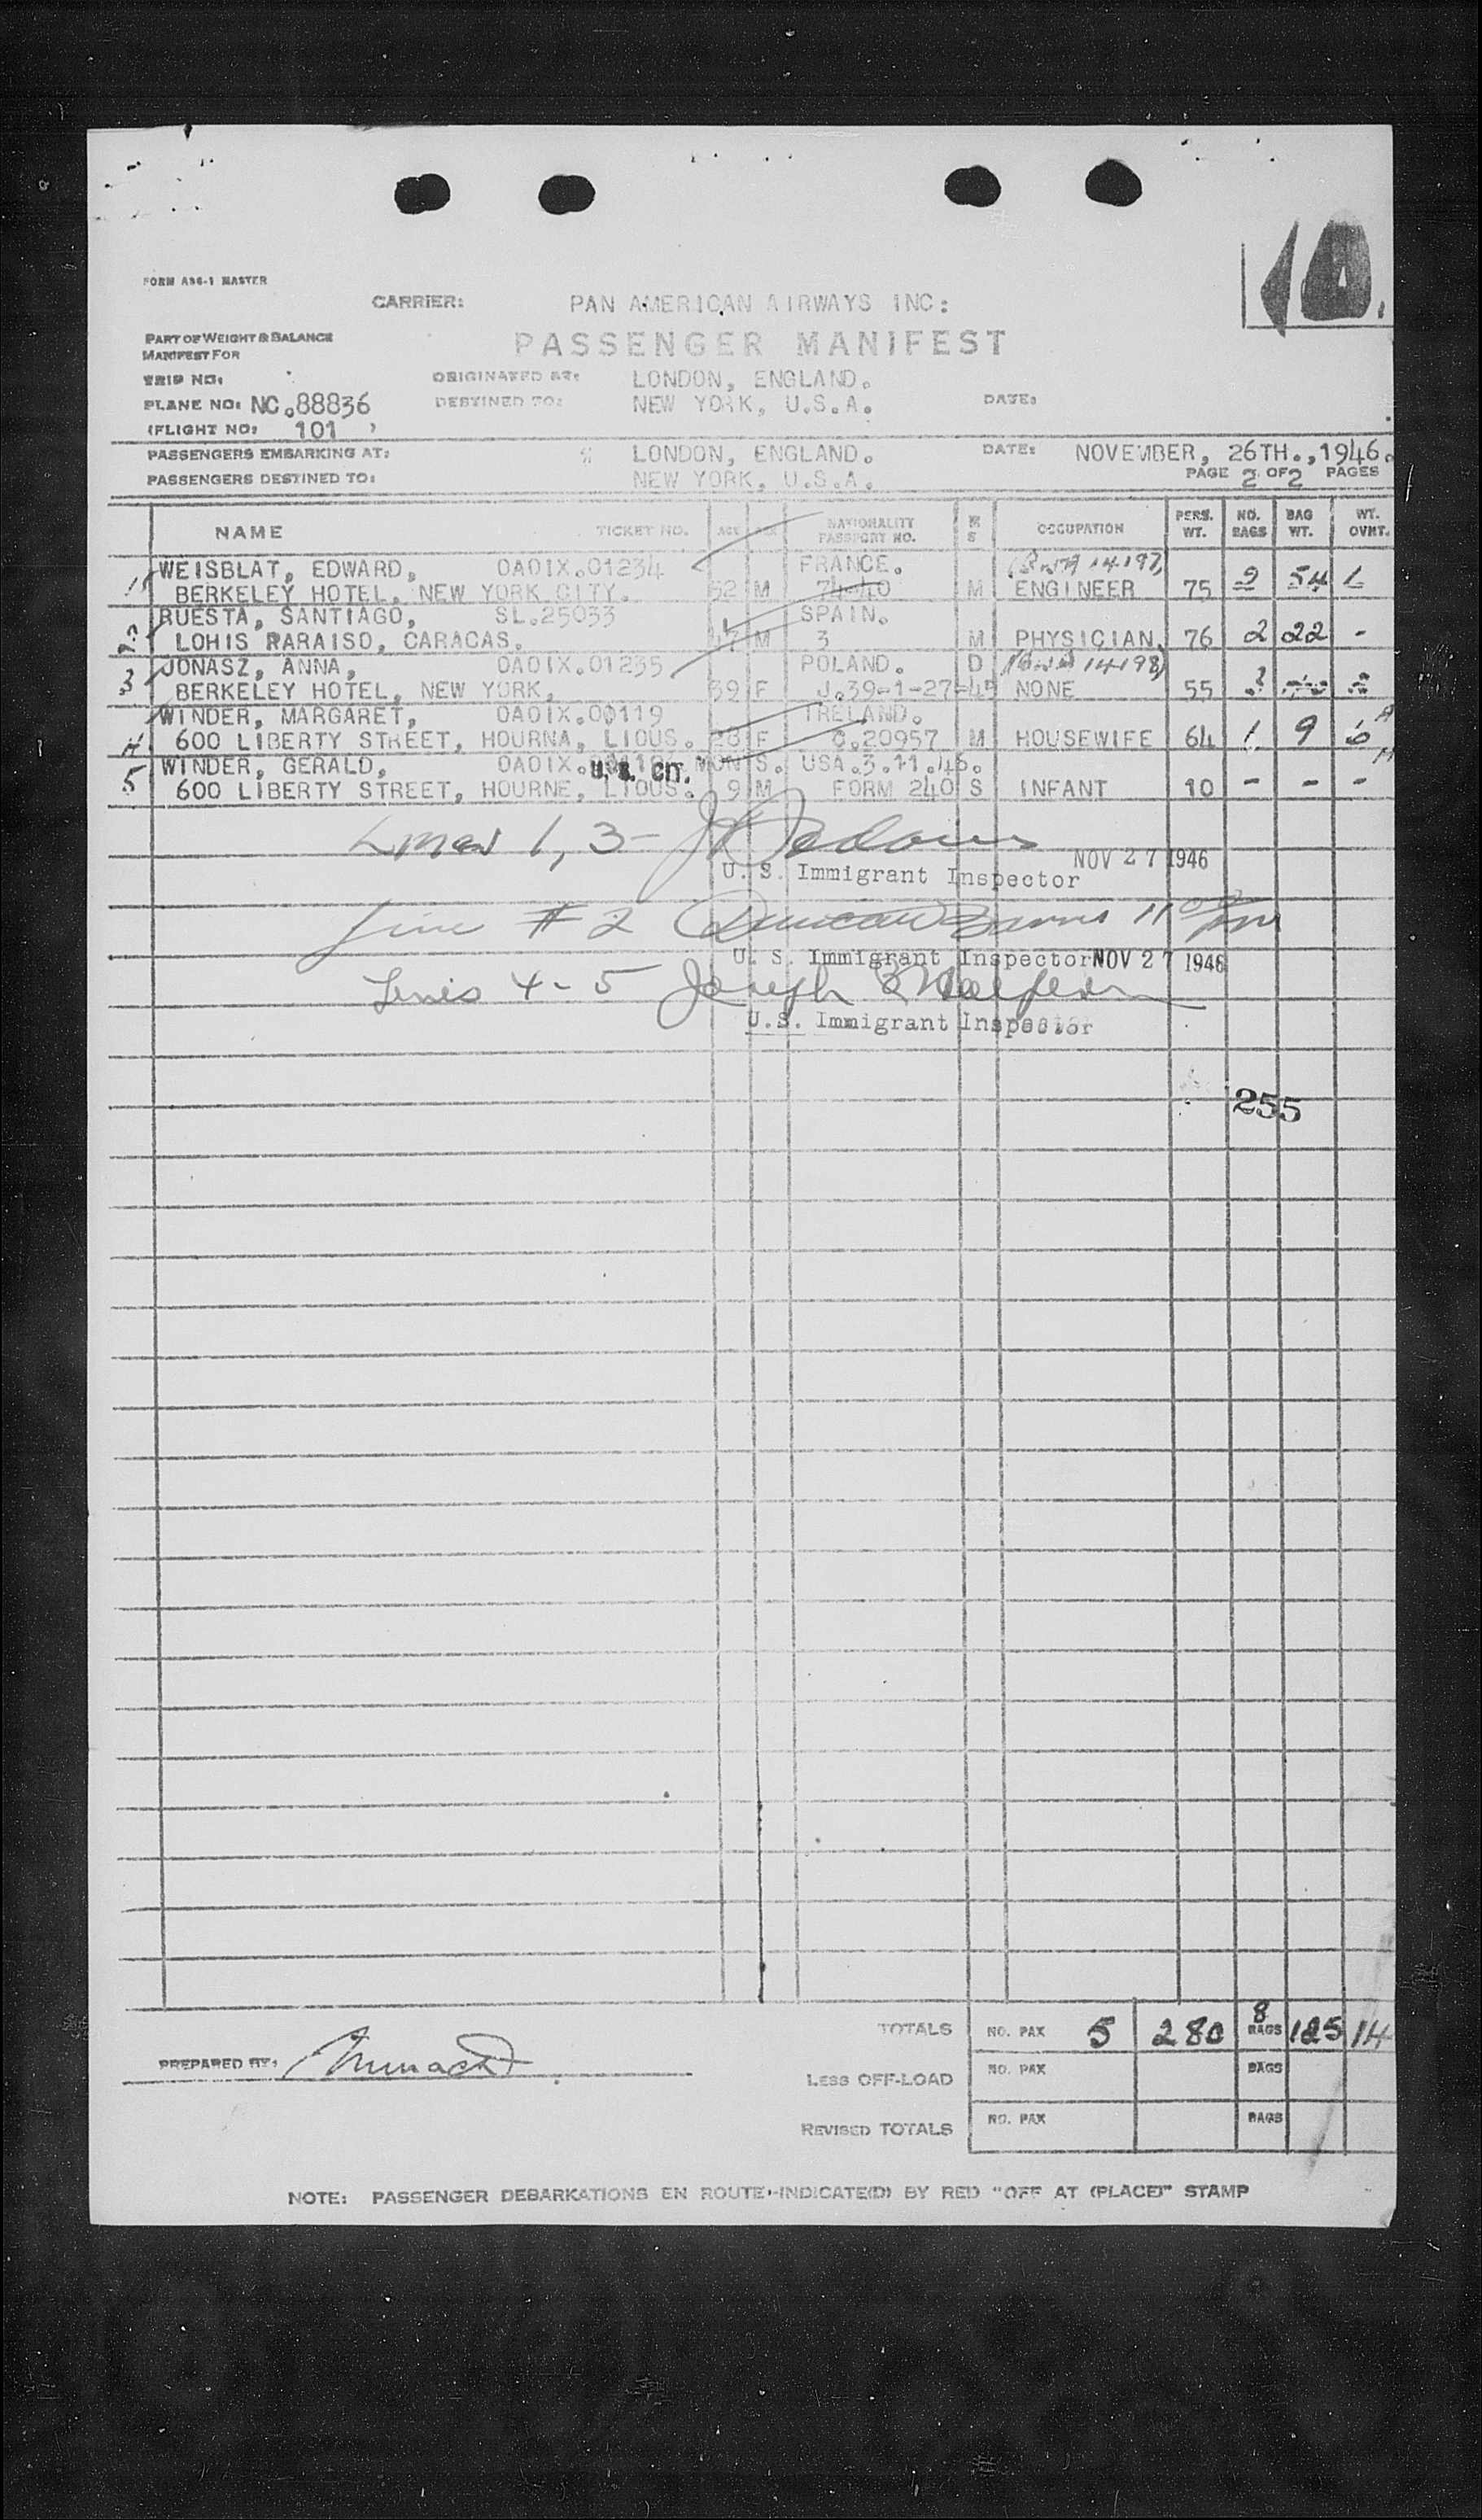 FORM A86-1 MASTER
CARRIER: PAN AMERICAN AIRWAYS INC:
PART OF WEIGHT & BALANCE
MANIFEST FOR
PASSENGER MANIFEST
TRIP NO: ORIGINATED AT: LONDON, ENGLAND.
PLANE NO: NC.88836 DESTINED TO: NEW YORK, U.S.A. DATE:
(FLIGHT NO: 101 )
PASSENGERS EMBARKING AT: LONDON, ENGLAND. DATE: NOVEMBER, 26TH.,1946.
PASSENGERS DESTINED TO: NEW YORK, U.S.A. PAGE 2 OF 2 PAGES
NAME TICKET NO. AGE SEX NATIONALITY PASSPORT NO. M S OCCUPATION PERS. WT. NO. BAGS BAG WT. WT. OVHT.
WEISBLAT, EDWARD, OAOIX.01234 FRANCE.
1 BERKELEY HOTEL, NEW YORK CITY. 52 M 74-40 M ENGINEER 75 2 54 L
RUESTA, SANTIAGO, SL.25033 SPAIN.
2 LOHIS PARAISO, CARACAS. 47 M 3 M PHYSICIAN, 76 2 22 -
JONASZ, ANNA, OAOIX.01235 POLAND. D
3 BERKELEY HOTEL, NEW YORK, 39 F J.39-1-27-45 NONE 55
WINDER, MARGARET, OAOIX.00119 IRELAND.
4 600 LIBERTY STREET, HOURNA, LIOUS. 28 F C.20957 M HOUSEWIFE 64 1 9
WINDER, GERALD, OAOIX. U.S. CIT. MON S. USA.3.11.46.
5 600 LIBERTY STREET, HOURNE, LIOUS. 9 M FORM 240 S INFANT 10 - - -
Lines 1, 3 -
NOV 27 1946
U. S. Immigrant Inspector
Line # 2 Duncan
U. S. Immigrant Inspector NOV 27 1946
Lines 4-5 Joseph
U.S. Immigrant Inspector
255
TOTALS NO. PAX 5 280 8 BAGS 125 14
PREPARED BY:
LESS OFF-LOAD NO. PAX BAGS
REVISED TOTALS NO. PAX BAGS
NOTE: PASSENGER DEBARKATIONS EN ROUTE-INDICATE(D) BY RED "OFF AT (PLACE)" STAMP